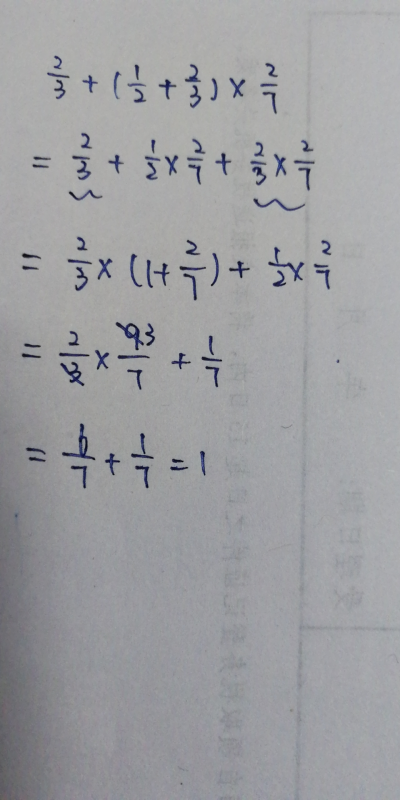 2/3 + (1/2 + 2/3) × 2/7
= 2/3 + 1/2 × 2/7 + 2/3 × 2/7
= 2/3 × (1 + 2/7) + 1/2 × 2/7
= 2/3 × 93/7 + 1/7
= 6/7 + 1/7 = 1